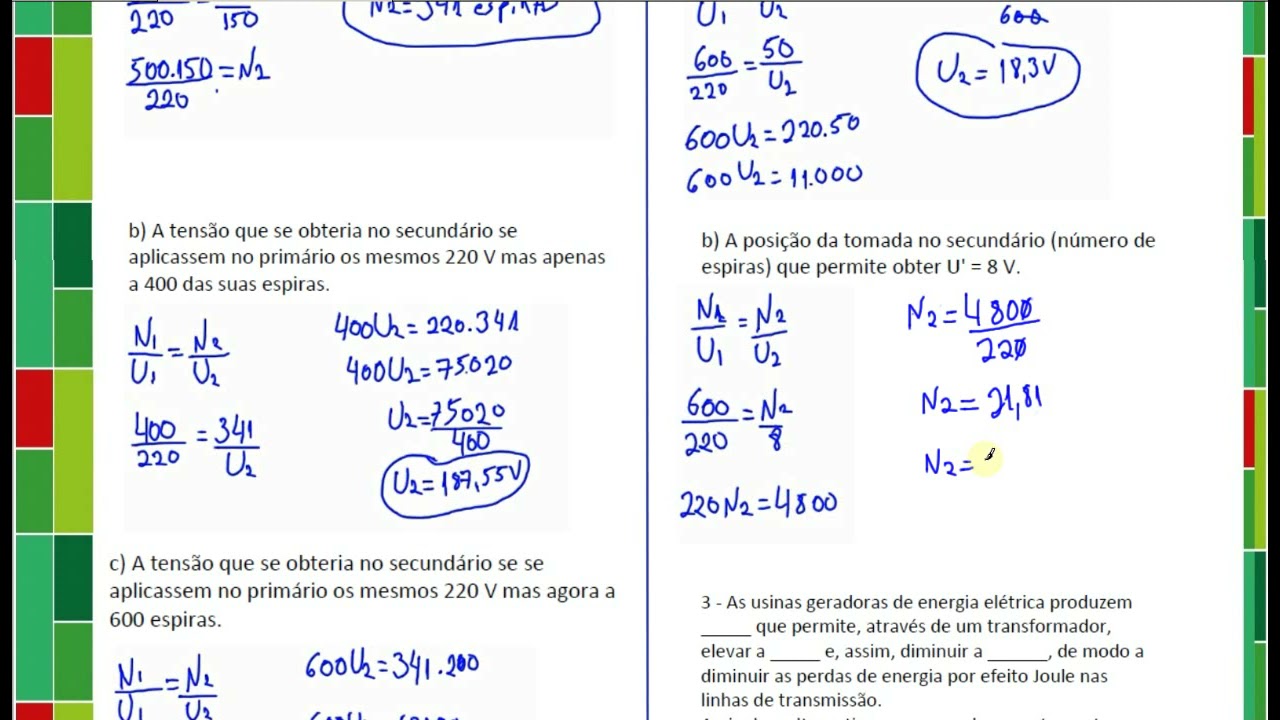 220
150
N2 = 341 espiras
500.150 = N2
220
b) A tensão que se obteria no secundário se
aplicassem no primário os mesmos 220 V mas apenas
a 400 das suas espiras.
N1 = N2
U1 U2
400 = 341
220 U2
400U2 = 220.341
400U2 = 75.020
U2 = 75020
400
U2 = 187,55V
c) A tensão que se obteria no secundário se se
aplicassem no primário os mesmos 220 V mas agora a
600 espiras.
N1 = N2
U1 U2
600U2 = 341.200
U1 U2
600 = 50
220 U2
600U2 = 220.50
600U2 = 11.000
600
U2 = 18,3V
b) A posição da tomada no secundário (número de
espiras) que permite obter U' = 8 V.
N1 = N2
U1 U2
600 = N2
220 8
220N2 = 4800
N2 = 4800
220
N2 = 21,81
N2 =
3 - As usinas geradoras de energia elétrica produzem
_____ que permite, através de um transformador,
elevar a _____ e, assim, diminuir a ______, de modo a
diminuir as perdas de energia por efeito Joule nas
linhas de transmissão.